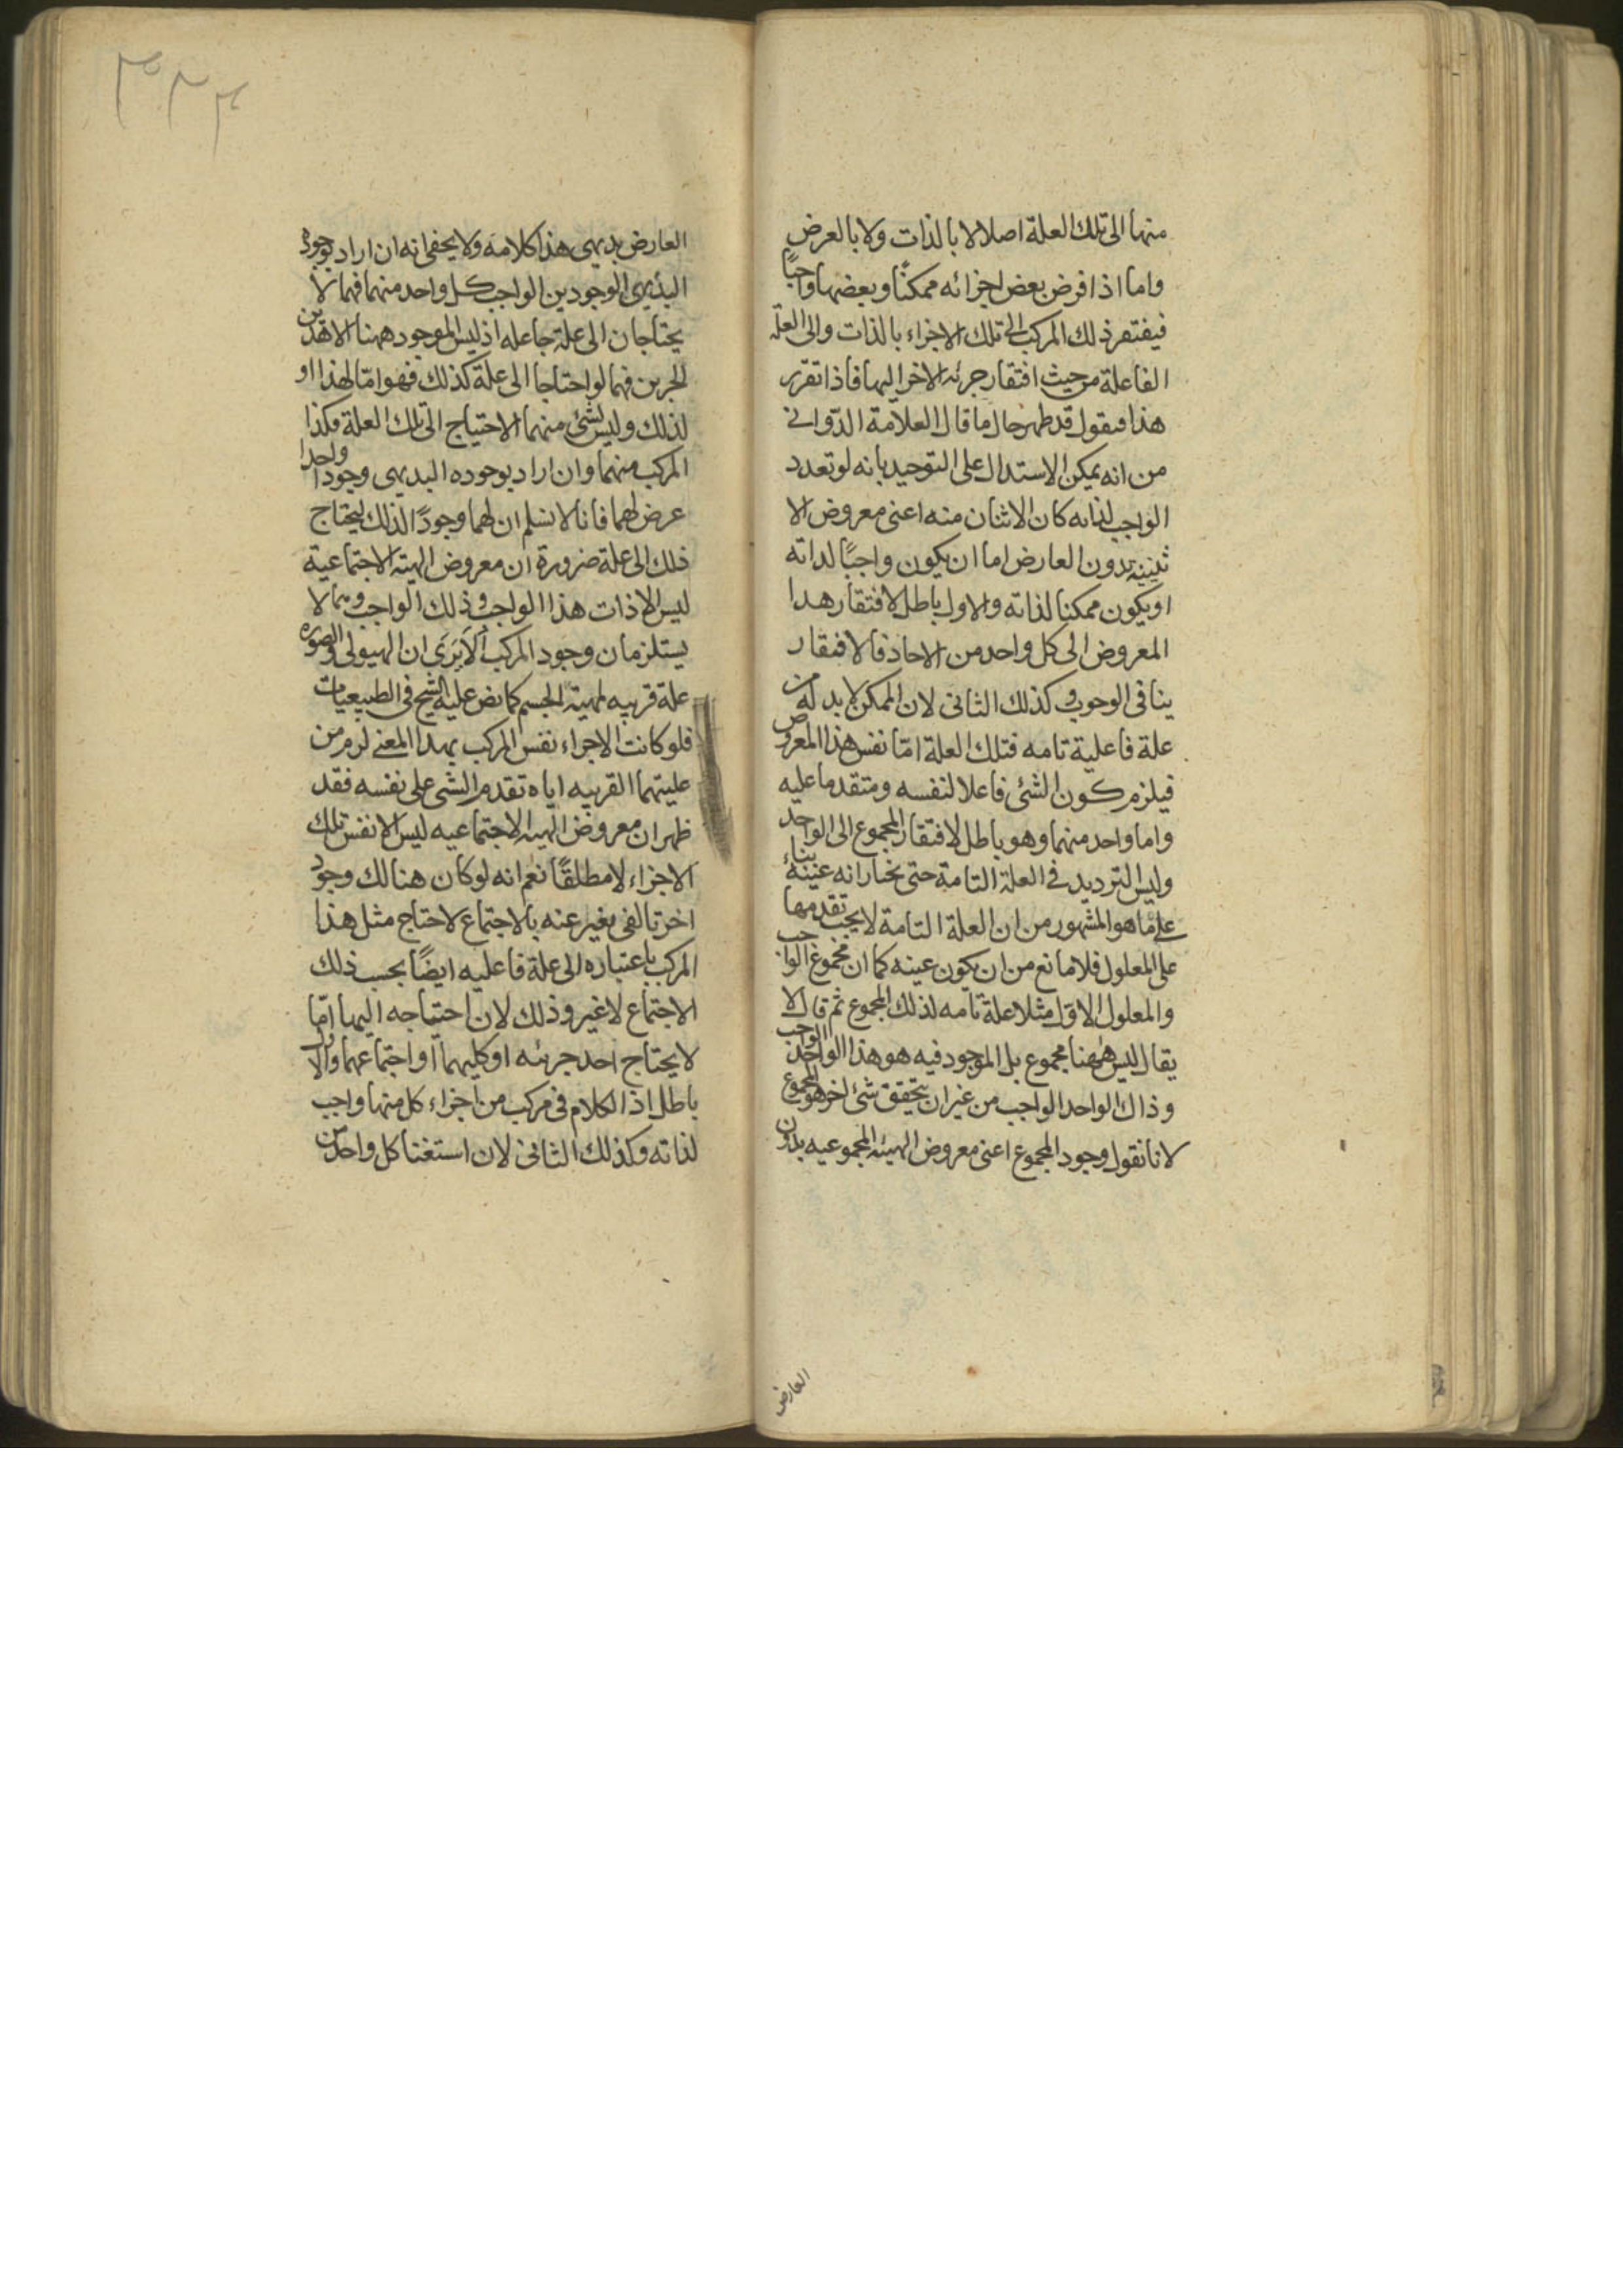 منها الى تلك العلة اصلا لا بالذات ولا بالعرض
واما اذا فرض بعض اجزائه ممكنًا وبعضها واجبًا
فيفتقر ذلك المركب الى تلك الاجزاء بالذات والى العلة
الفاعلة من حيث افتقار جزئه الاخر اليها فاذا تقرر
هذا فنقول قد ظهر حال ما قال العلامة الدّوانى
من انه يمكن الاستدلال على التوحيد بانه لو تعدد
الواجب لذاته كان الاثنان منه اعنى معروض الا
ثنينية بدون العارض اما ان يكون واجبًا لذاته
او يكون ممكنا لذاته والاول باطل لافتقار هذا
المعروض الى كل واحد من الاحاد فالافتقار
ينافى الوجوب وكذلك الثانى لان الممكن لا بد له من
علة فاعلية تامه فتلك العلة امّا نفس هذا المعروض
فيلزم كون الشئ فاعلا لنفسه ومتقدما عليه
واما واحد منهما وهو باطل لافتقار المجموع الى الواحد
وليس الترديد فى العلة التامة حتى نختار انه عينه بناء
على ما هو المشهور من ان العلة التامة لا يجب تقدمها
على المعلول فلا مانع من ان يكون عينه كما ان مجموع الواجب
والمعلول الاول مثلا علة تامه لذلك المجموع ثم قال لا
يقال ليس ههنا مجموع بل الموجود فيه هو هذا الواحد الواجب
وذاك الواحد الواجب من غير ان يتحقق شئ اخر هو المجموع
لانا نقول وجود المجموع اعنى معروض الهيئه المجموعيه بدون
العارض
٣٣٤
العارض بديهى هذا كلامه ولا يخفى انه ان اراد بوجوده
البديهى الوجودين الواجب كل واحد منهما فهما لا
يحتاجان الى علة جاعله اذ ليس الموجود ههنا الا هذين
الجزئين فهما لو احتاجا الى علة كذلك فهو امّا لهذا او
لذلك وليس لشئ منهما الاحتياج الى تلك العلة فكذا
المركب منهما وان اراد بوجوده البديهى وجودا واحدا
عرض لهما فانا لا نسلم ان لهما وجودًا لذلك ليحتاج
ذلك الى علة ضرورة ان معروض الهيئه الاجتماعية
ليس الا ذات هذا الواجب وذلك الواجب وهما لا
يستلزمان وجود المركب الا يرى ان الهيولى والصوره
علة قريبه لمهية الجسم كما نص عليه الشيخ فى الطبيعيات
فلو كانت الاجزاء نفس المركب بهذا المعنى لزم من
عليتهما القريبه اياه تقدم الشئ على نفسه فقد
ظهر ان معروض الهيئه الاجتماعيه ليس الا نفس تلك
الاجزاء لا مطلقًا نعم انه لو كان هنالك وجود
اخر تالفى يغير عنه بالاجتماع لاحتاج مثل هذا
المركب باعتباره الى علة فاعليه ايضًا بحسب ذلك
الاجتماع لا غير وذلك لان احتياجه اليها امّا
لا يحتاج احد جزئه او كليهما او اجتماعهما والاول
باطل اذ الكلام فى مركب من اجزاء كل منها واجب
لذاته وكذلك الثانى لان استغنا كل واحد من